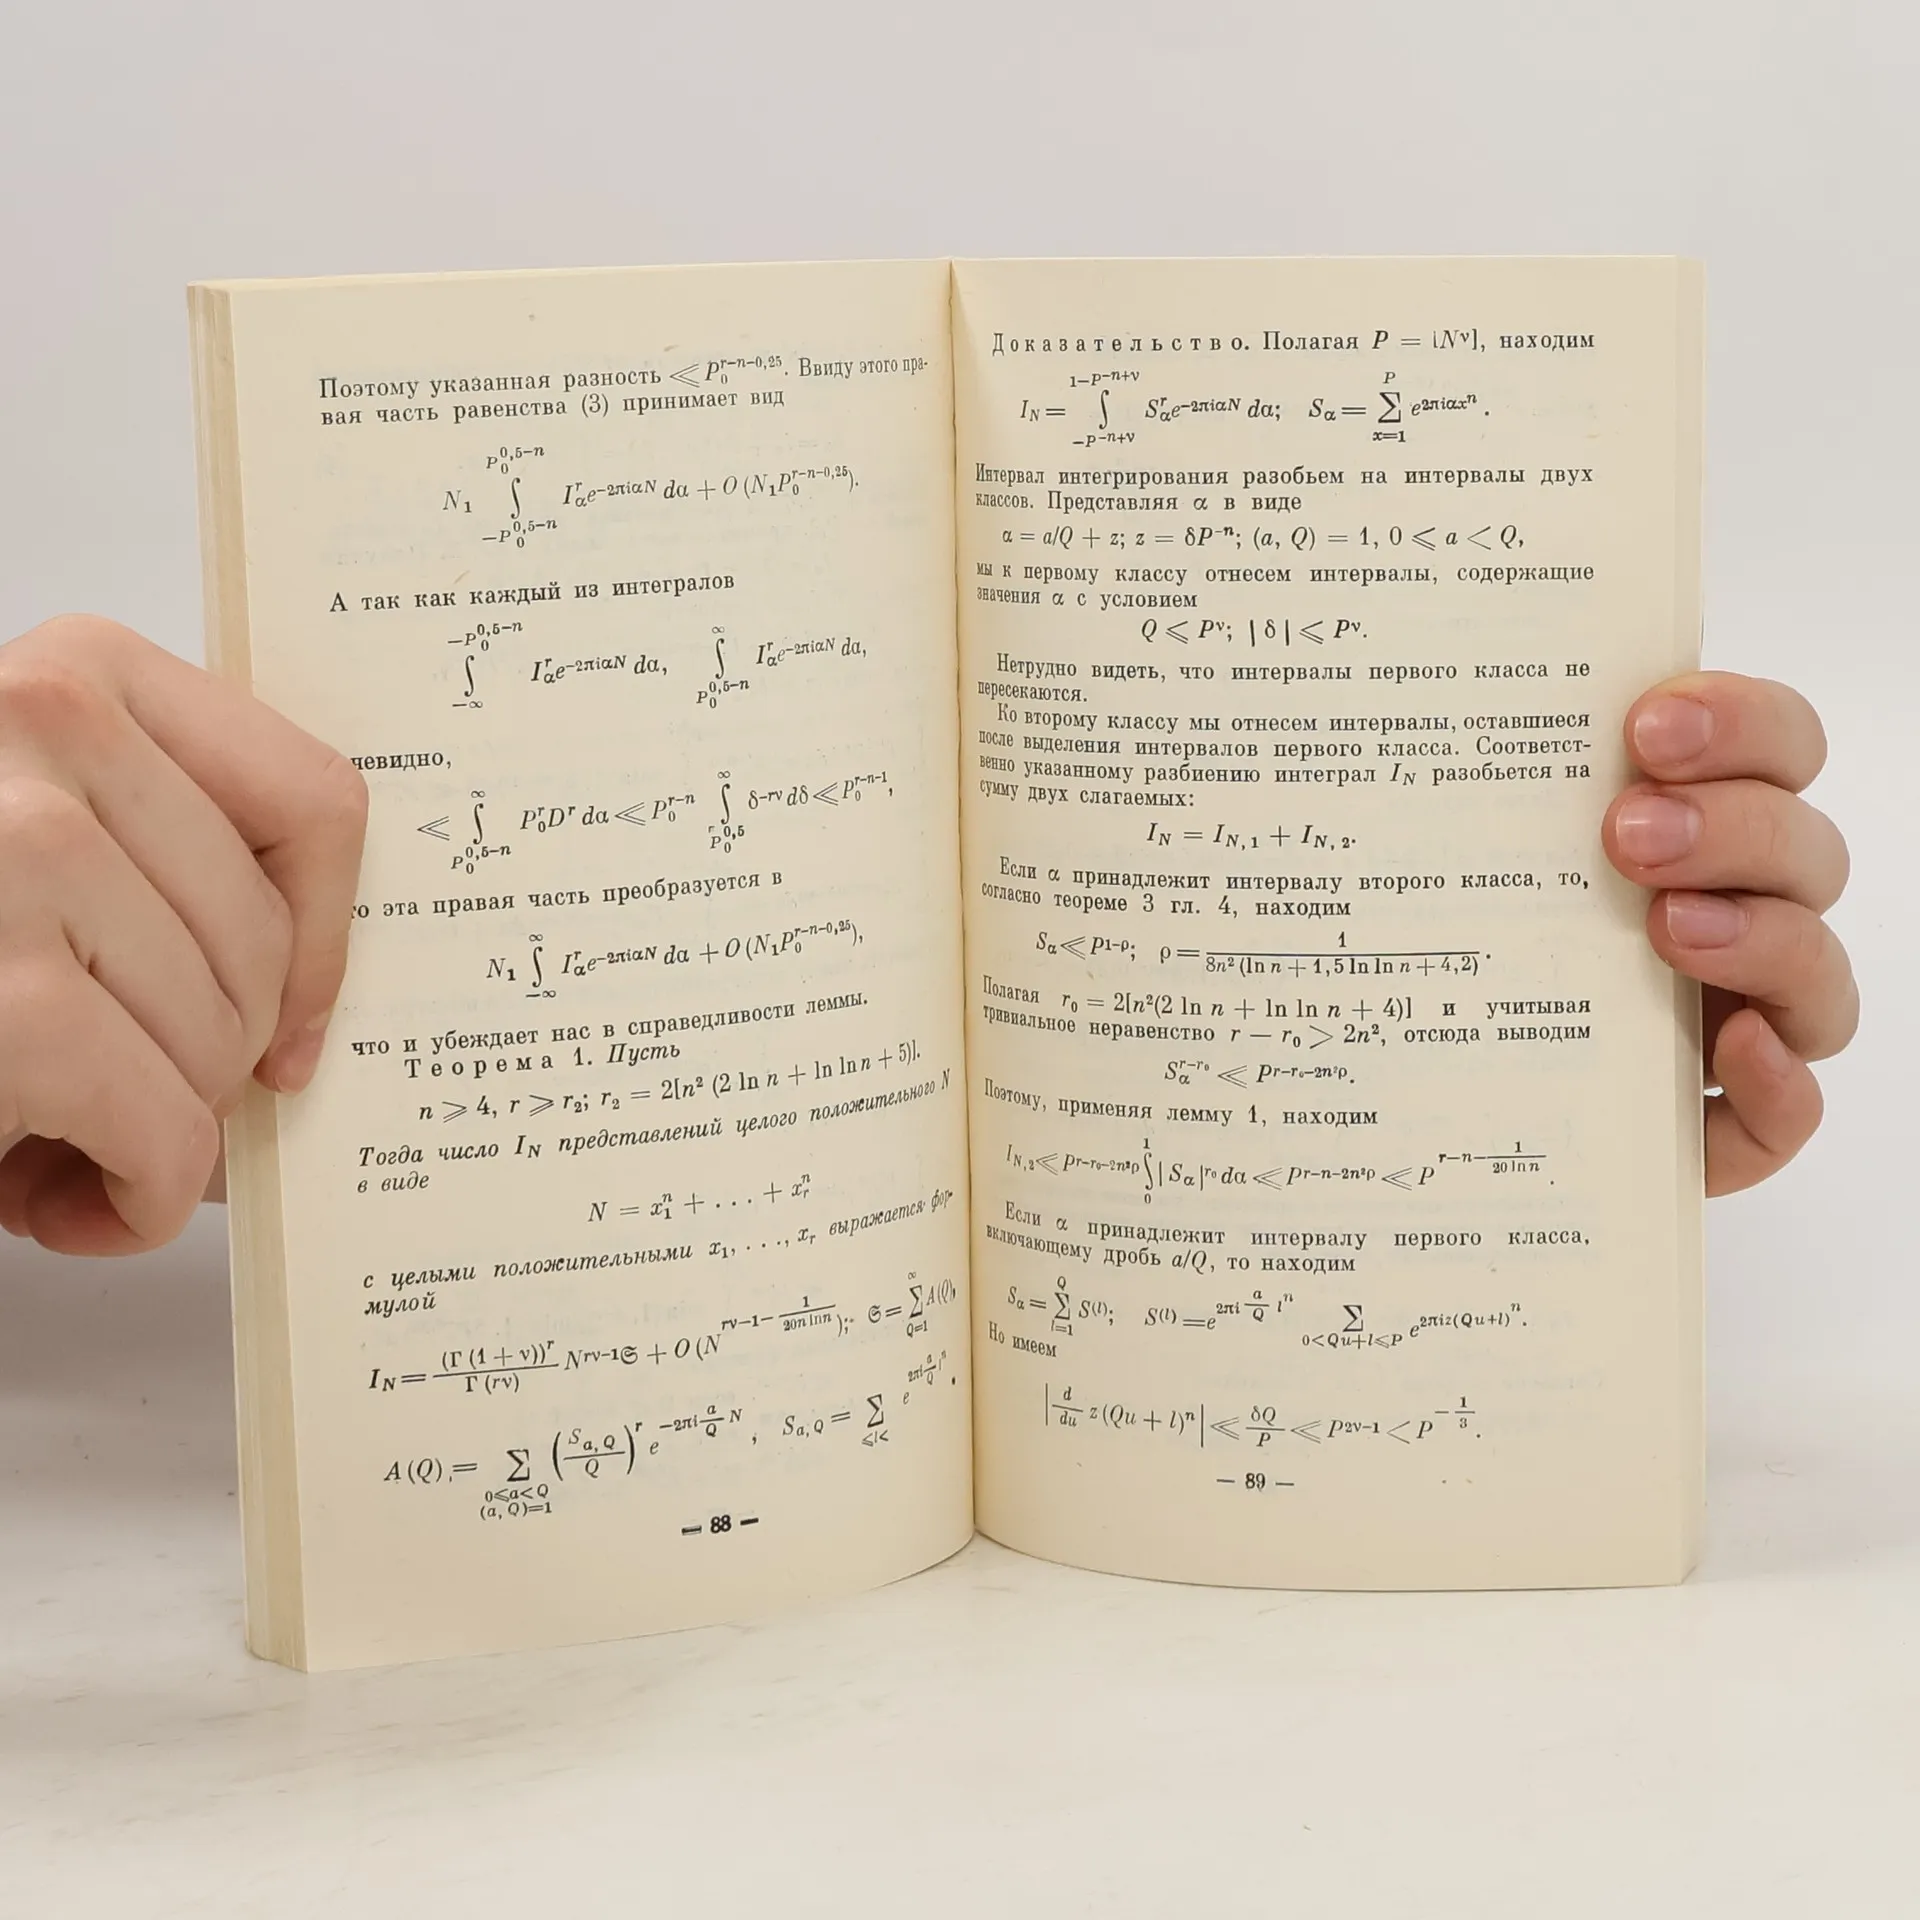 Поэтому указанная разность ≪ P₀^{r−n−0,25}. Ввиду этого пра-
вая часть равенства (3) принимает вид
N₁ ∫_{−P₀^{0,5−n}}^{P₀^{0,5−n}} I_α^r e^{−2πiαN} dα + O (N₁P₀^{r−n−0,25}).
А так как каждый из интегралов
∫_{−∞}^{−P₀^{0,5−n}} I_α^r e^{−2πiαN} dα, ∫_{P₀^{0,5−n}}^{∞} I_α^r e^{−2πiαN} dα,
чевидно,
≪ ∫_{P₀^{0,5−n}}^{∞} P₀^r D^r dα ≪ P₀^{r−n} ∫_{P₀^{0,5}}^{∞} δ^{−rν} dδ ≪ P₀^{r−n−1},
то эта правая часть преобразуется в
N₁ ∫_{−∞}^{∞} I_α^r e^{−2πiαN} dα + O (N₁P₀^{r−n−0,25}),
что и убеждает нас в справедливости леммы.
Теорема 1. Пусть
n ⩾ 4, r ⩾ r₂; r₂ = 2[n² (2 ln n + ln ln n + 5)].
Тогда число I_N представлений целого положительного N
в виде
N = x₁^n + . . . + x_r^n
с целыми положительными x₁, . . ., x_r выражается фор-
мулой
I_N = \frac{(Γ (1 + ν))^r}{Γ (rν)} N^{rν−1}𝔖 + O (N^{rν−1−\frac{1}{20n ln n}}); 𝔖 = ∑_{Q=1}^{∞} A(Q),
A (Q) = ∑_{0⩽a<Q (a, Q)=1} (\frac{S_{a, Q}}{Q})^r e^{−2πi\frac{a}{Q}N}, S_{a, Q} = ∑_{⩽l<} e^{2πi\frac{a}{Q}l^n}.
— 88 —
Доказательство. Полагая P = [N^ν], находим
I_N = ∫_{−P^{−n+ν}}^{1−P^{−n+ν}} S_α^r e^{−2πiαN} dα; S_α = ∑_{x=1}^{P} e^{2πiαx^n}.
Интервал интегрирования разобьем на интервалы двух
классов. Представляя α в виде
α = a/Q + z; z = δP^{−n}; (a, Q) = 1, 0 ⩽ a < Q,
мы к первому классу отнесем интервалы, содержащие
значения α с условием
Q ⩽ P^ν; | δ | ⩽ P^ν.
Нетрудно видеть, что интервалы первого класса не
пересекаются.
Ко второму классу мы отнесем интервалы, оставшиеся
после выделения интервалов первого класса. Соответст-
венно указанному разбиению интеграл I_N разобьется на
сумму двух слагаемых:
I_N = I_{N, 1} + I_{N, 2}.
Если α принадлежит интервалу второго класса, то,
согласно теореме 3 гл. 4, находим
S_α ≪ P^{1−ρ}; ρ = \frac{1}{8n² (ln n + 1,5 ln ln n + 4,2)}.
Полагая r₀ = 2[n²(2 ln n + ln ln n + 4)] и учитывая
тривиальное неравенство r − r₀ > 2n², отсюда выводим
S_α^{r−r₀} ≪ P^{r−r₀−2n²ρ}.
Поэтому, применяя лемму 1, находим
I_{N, 2} ≪ P^{r−r₀−2n²ρ} ∫_0^1 | S_α |^{r₀} dα ≪ P^{r−n−2n²ρ} ≪ P^{r−n−\frac{1}{20 ln n}}.
Если α принадлежит интервалу первого класса,
включающему дробь a/Q, то находим
S_α = ∑_{l=1}^{Q} S^{(l)}; S^{(l)} = e^{2πi\frac{a}{Q}l^n} ∑_{0<Qu+l⩽P} e^{2πiz(Qu+l)^n}.
Но имеем
|\frac{d}{du} z (Qu + l)^n| ≪ \frac{δQ}{P} ≪ P^{2ν−1} < P^{−\frac{1}{3}}.
— 89 —